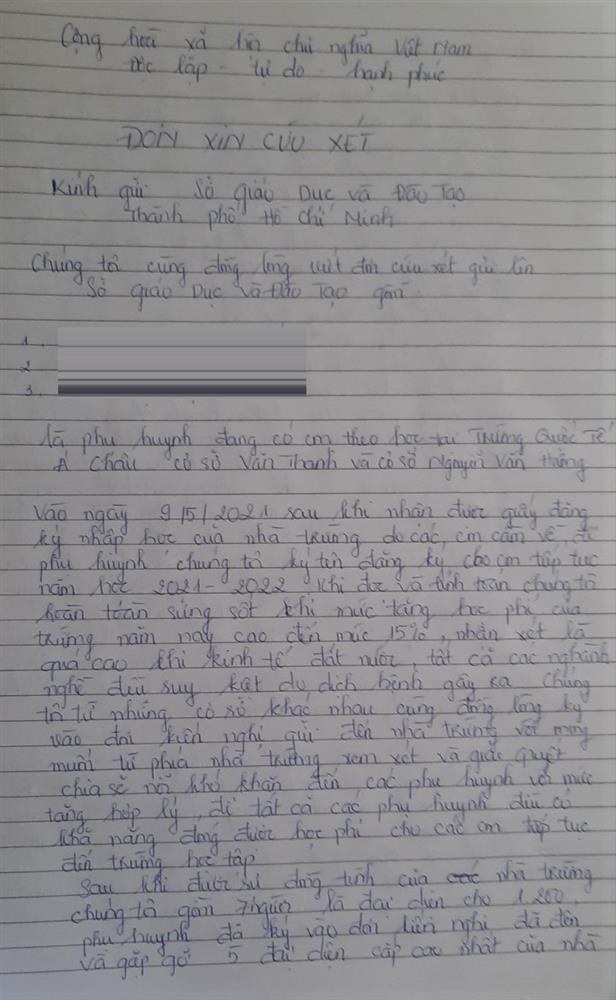 Cộng hoà xã hội chủ nghĩa Việt Nam
Độc lập - tự do - hạnh phúc
ĐƠN XIN CỨU XÉT
Kính gửi Sở giáo Dục và Đào Tạo
Thành phố Hồ Chí Minh
Chúng tôi cùng đồng lòng viết đơn cứu xét gửi lên
Sở giáo Dục và Đào Tạo gồm:
1.
2
3.
là phụ huynh đang có con theo học tại Trường Quốc Tế
Á Châu cơ sở Văn Thánh và cơ sở Nguyễn Văn Hưởng
Vào ngày 9/5/2021 sau khi nhận được giấy đăng
ký nhập học của nhà trường do các con cầm về để
phụ huynh chúng tôi ký tên đăng ký cho con tiếp tục
năm học 2021- 2022 khi đọc và tính toán chúng tôi
hoàn toàn sững sốt khi mức tăng học phí của
trường năm nay cao đến mức 15%, nhận xét là
quá cao khi kinh tế đất nước, tất cả các nghành
nghề đều suy kiệt do dịch bệnh gây ra chúng
tôi từ những cơ sở khác nhau cùng đồng lòng ký
vào đơn kiến nghị gửi đến nhà trường với mong
muốn từ phía nhà trường xem xét và giải quyết
chia sẽ nỗi khó khăn đến các phụ huynh với mức
tăng hợp lý, để tất cả các phụ huynh đều có
khả năng đóng được học phí cho các con tiếp tục
đến trường học tập
Sau khi được sự đồng tình của nhà trường
chúng tôi gồm 7 người là đại diện cho 1.200
phụ huynh đã ký vào đơn kiến nghị đã đến
và gặp gỡ 5 đại diện cấp cao nhất của nhà